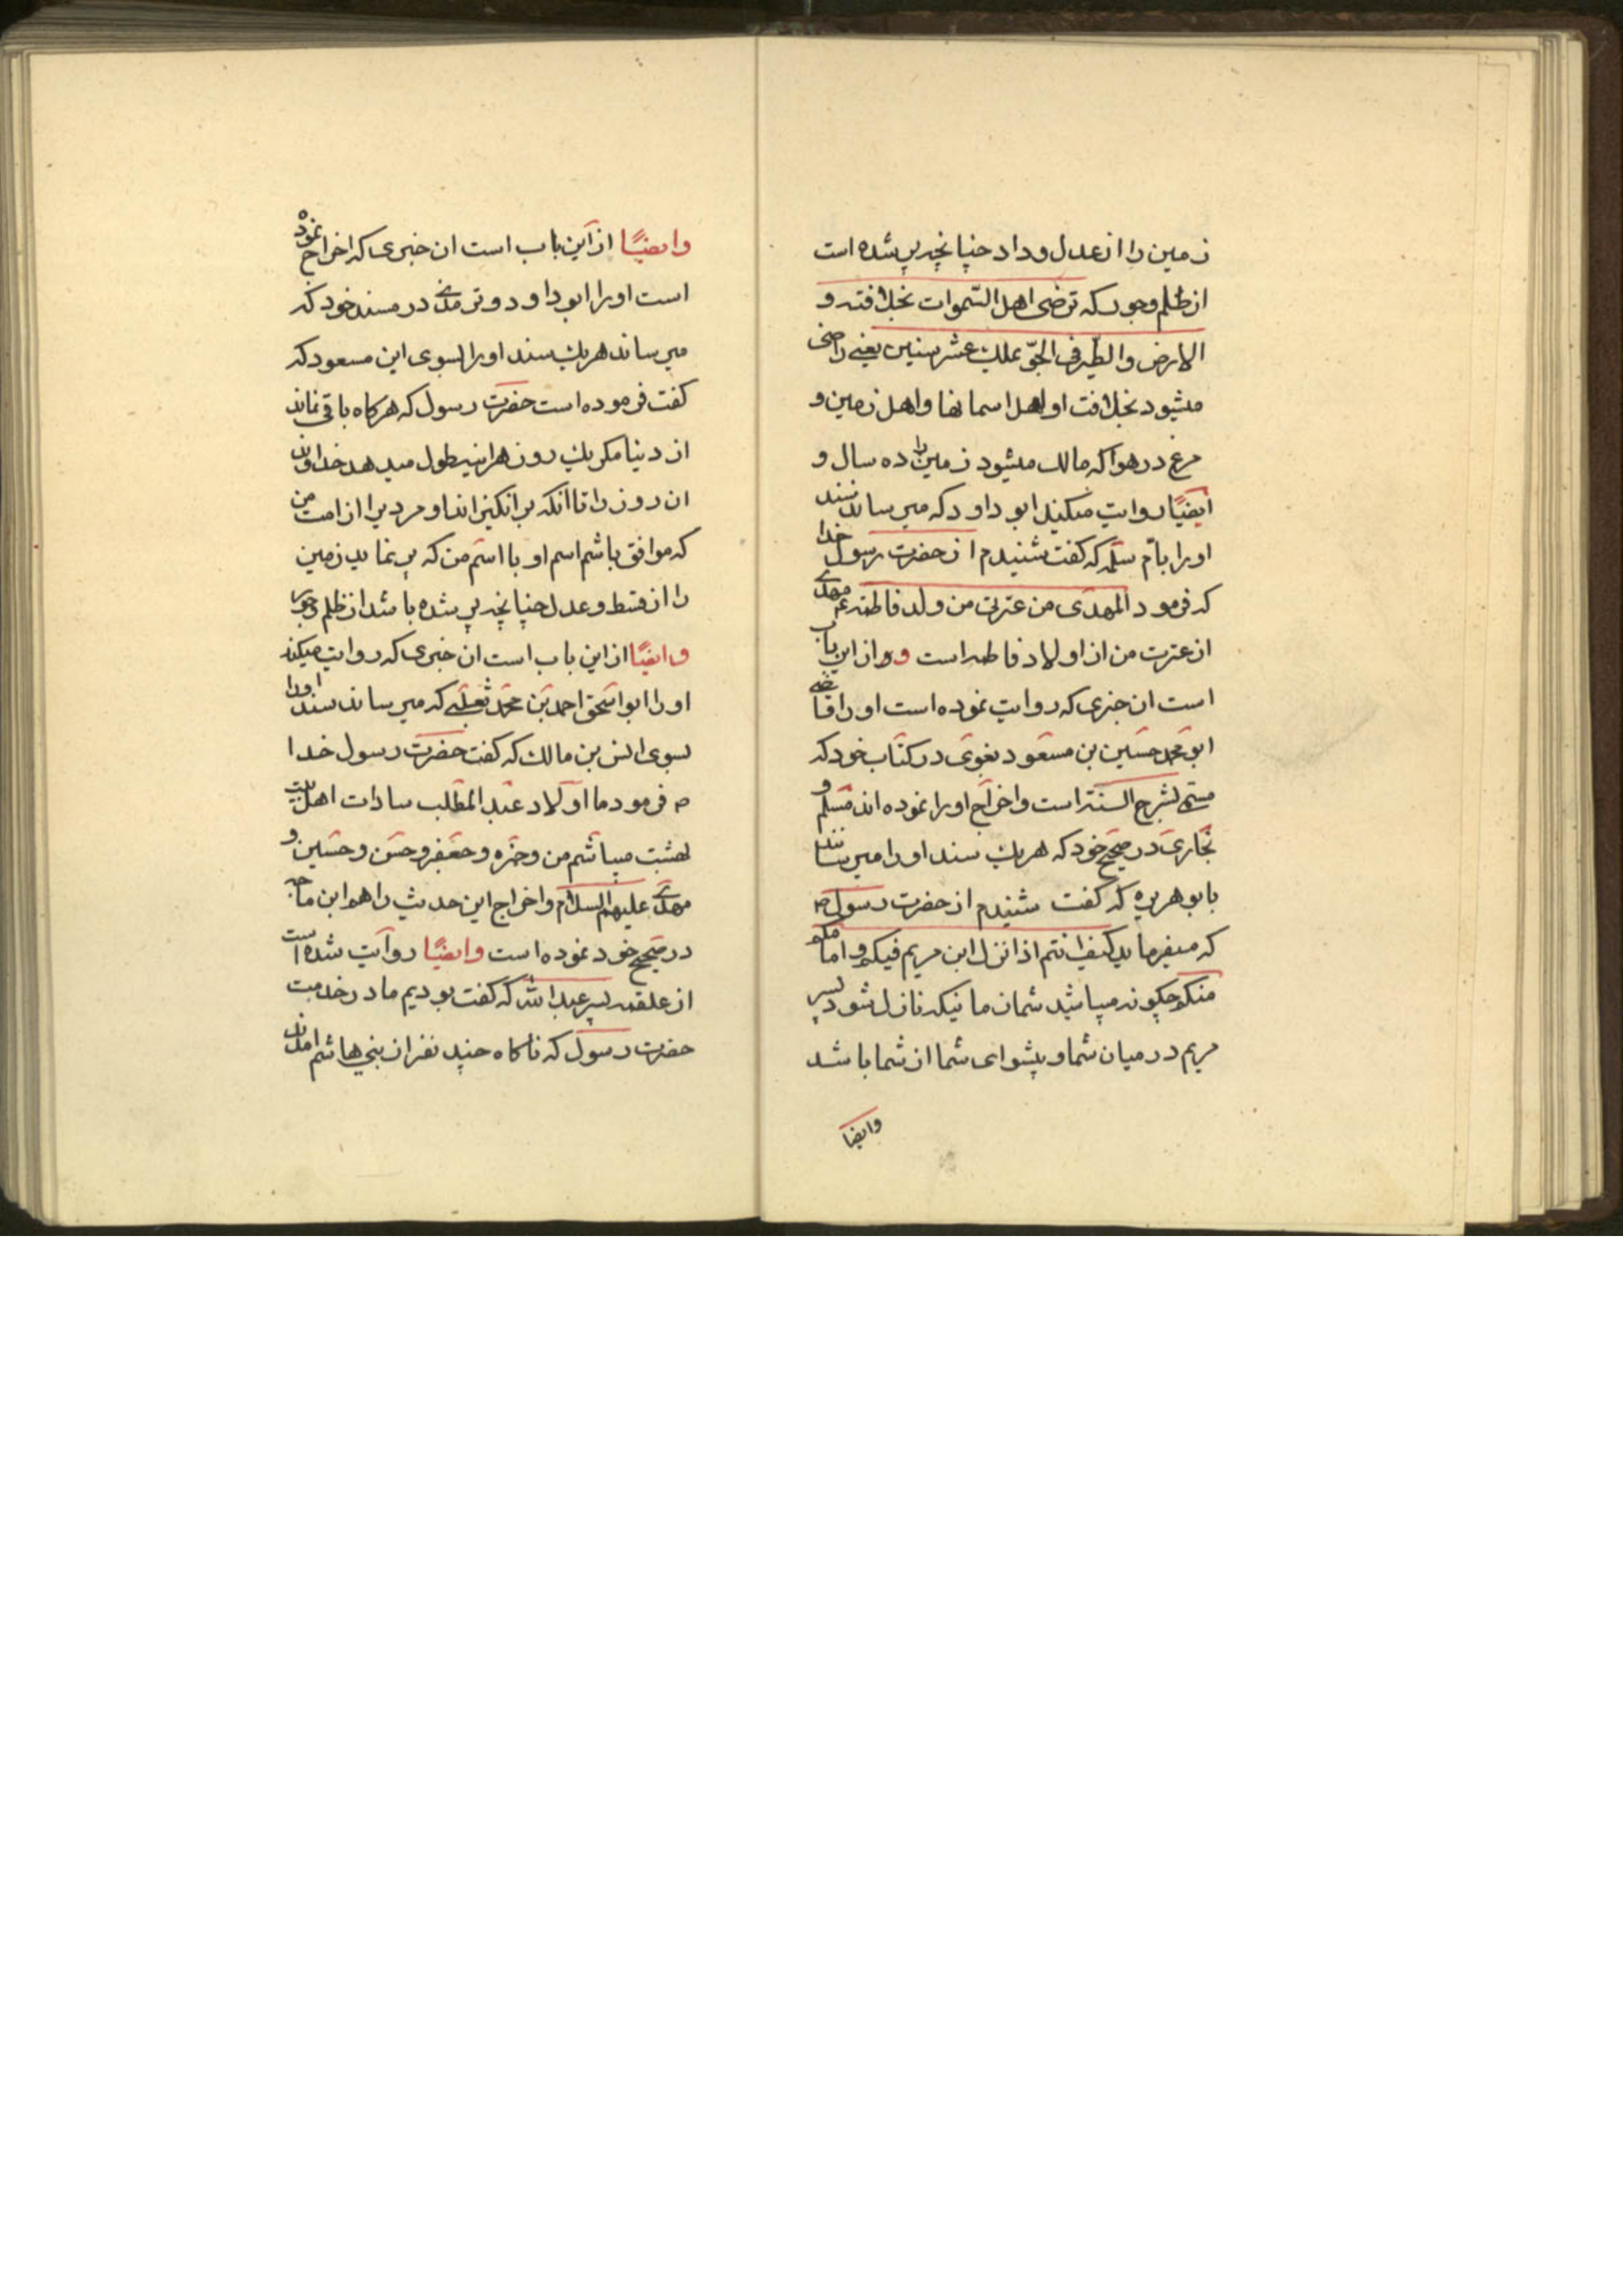 زمین را از عدل و داد چنانچه پر شده است
از ظلم و جور که ترضی اهل السموات بخلافته و
الارض والطیر فی الجو یملک عشر سنین یعنی راضی
میشود بخلافت او اهل اسمانها و اهل زمین و
مرغ در هوا که مالک میشود زمین را ده سال و
ایضًا روایت میکند ابو داود که میرساند سند
او را بام سلمه که گفت شنیدم از حضرت رسول خدا
که فرمود المهدی من عترتی من ولد فاطمه ع مهدی
از عترت من از اولاد فاطمه است و از این باب
است ان خبری که روایت نموده است او را قاضی
ابو محمد حسین بن مسعود بغوی در کتاب خود که
مسمی بشرح السنته است و اخراج او را نموده اند مسلم و
بخاری در صحیح خود که هریک سند او را میرسانند
بابو هریره که گفت شنیدم از حضرت رسول ص
که میفرماید کیف انتم اذا نزل ابن مریم فیکم و امامکم
منکم چگونه میباشید شمان مانیکه نازل شود پسر
مریم در میان شما و پیشوای شما از شما باشد
وایضا
وایضًا از این باب است ان خبری که اخراج نموده
است او را ابو داود و ترمذی در مسند خود که
میرساند هریک سند او را بسوی ابن مسعود که
گفت فرموده است حضرت رسول که هرگاه باقی نماند
از دنیا مگر یک روز هراینه طول میدهد خداوند
ان روز را تا انکه بر انگیزاند او مردیرا از امت من
که موافق باشم اسم او با اسم من که پر نماید زمین
را از قسط و عدل چنانچه پر شده باشد از ظلم و جور
وایضًا از این باب است ان خبری که روایت میکند
او را ابو اسحق احمد بن محمد ثعلبی که میرساند سند او را
بسوی انس بن مالک که گفت حضرت رسول خدا
ص فرمود ما اولاد عبد المطلب سادات اهل
بهشت میباشم من و حمزه و جعفر و حسن و حسین و
مهدی علیهم السلام و اخراج این حدیث را هو ابن ماجه
در صحیح خود نموده است وایضًا روایت شده است
از علقمه پسر عبد الله که گفت بودیم ما در خدمت
حضرت رسول که ناگاه چند نفر از بنی هاشم امدند